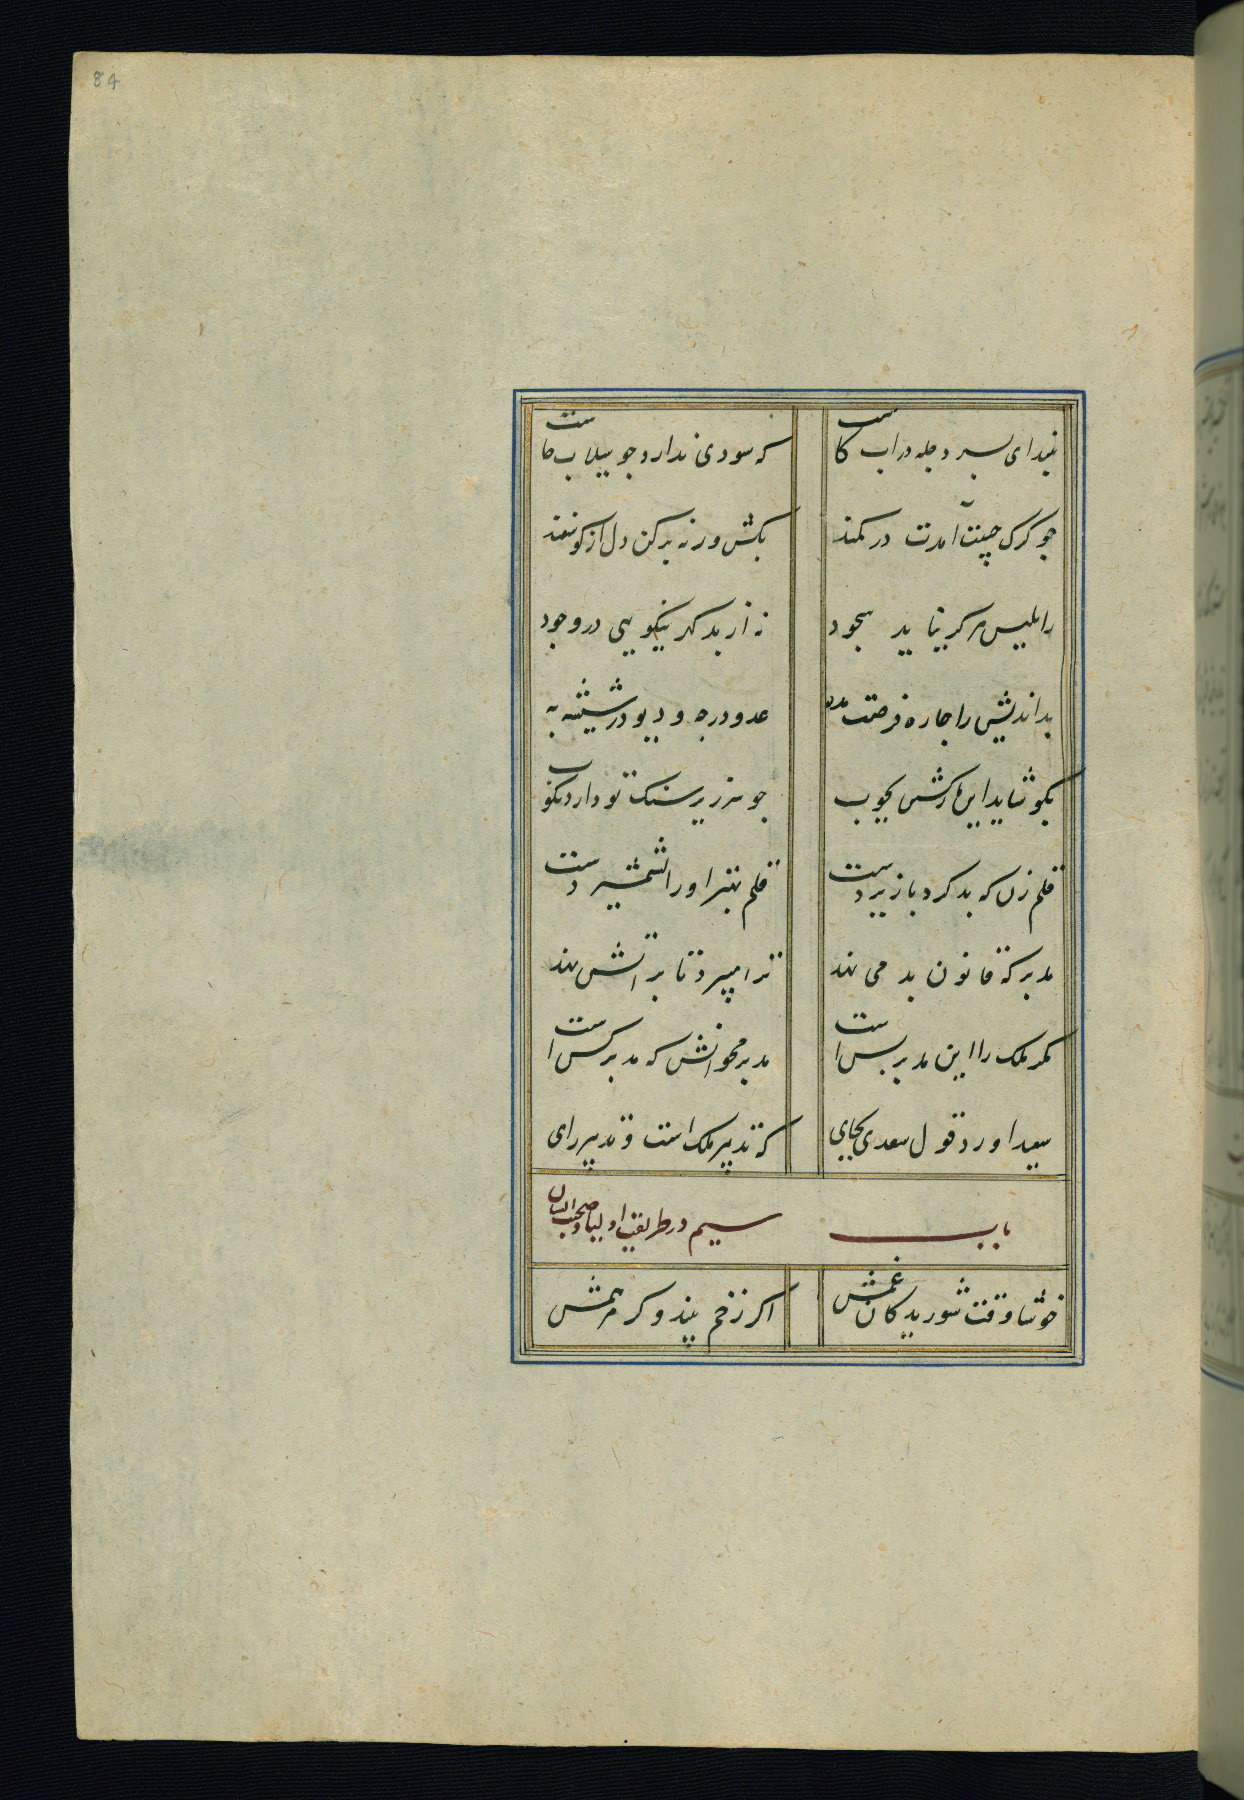 84
ببند ای پسر دجله در اب کاست که سودی ندارد جو سیلاب خاست
جو کرک خبیث آمدت در کمند بکش ورنه برکن دل از کوسفند
زابلیس هرکز نیاید سجود نه از بد کهر نیکویی در وجود
بداندیش را جاه و فرصت مده عدو در چه و دیو در شیشه به
مکو شاید این مار کشتن بجوب جو سر زیر سنک تو دارد بکوب
قلم زن که بد کرد با زیردست قلم بهتر او را بشمشیر دست
مدبر که قانون بد می نهد ترا میبرد تا بر اتش نهد
مکو ملک را این مدبر بس است مدبر مخوانش که مدبر کس است
سعید اورد قول سعدی بجای که تدبیر ملک است و تدبیر رای
باب سیم در طریقت اولیا و
خوشا وقت شوریدکان غمش اکر زخم بیند و کر مرهمش